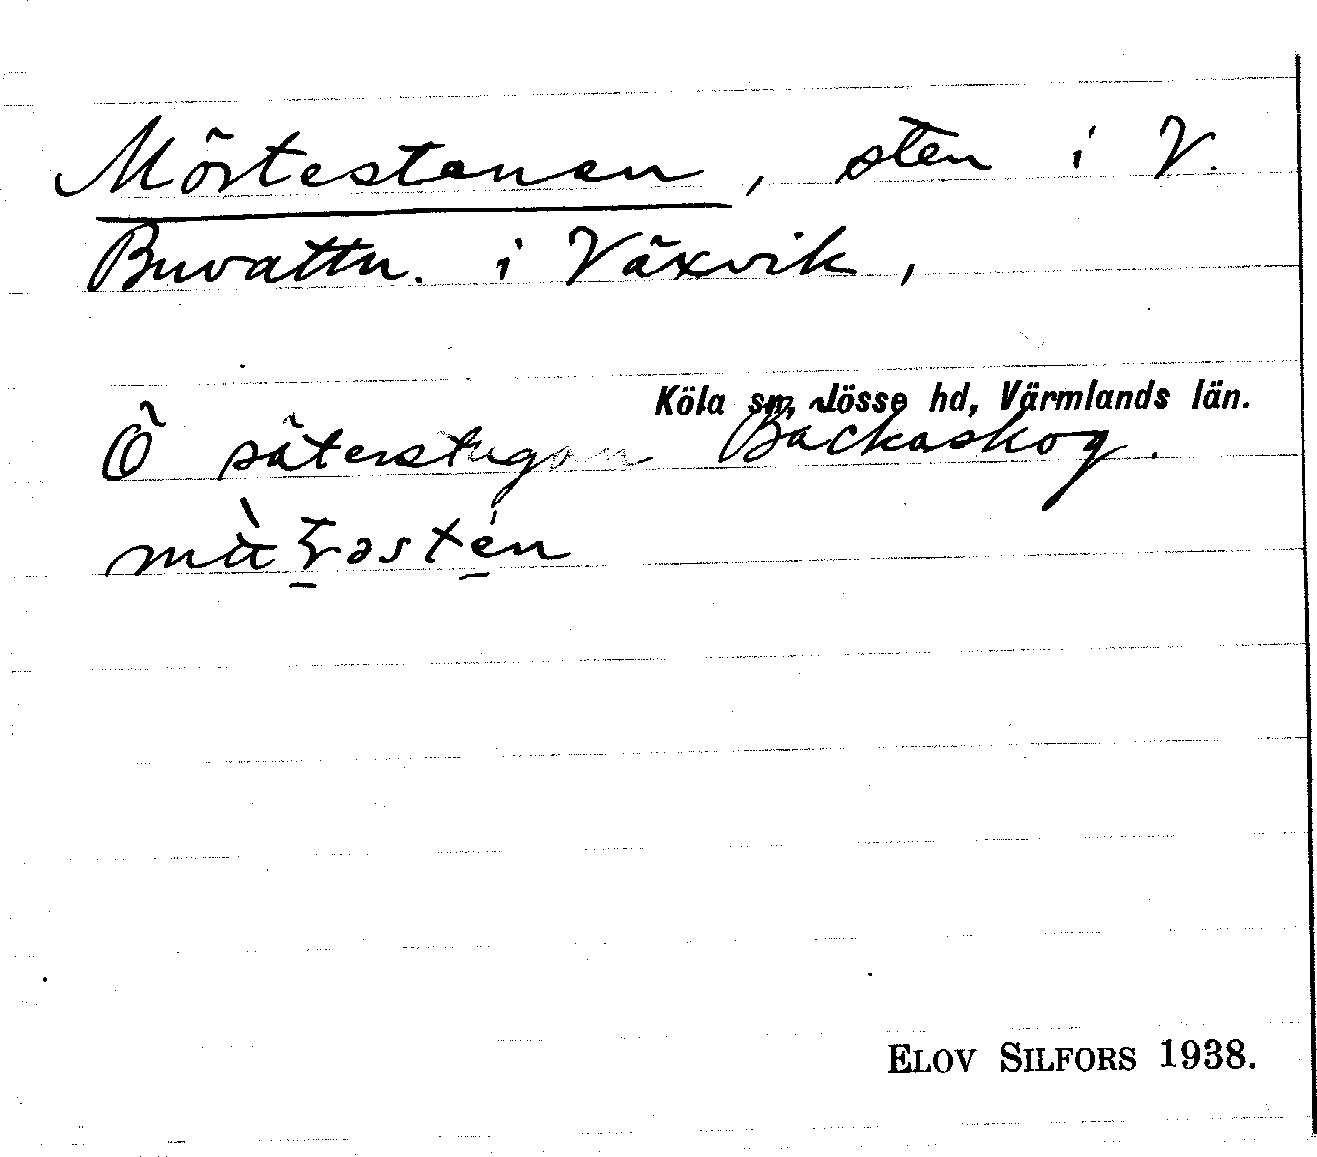 Mörtestenen, sten i V.
Buvattn. i Växvik,
Köla sn, Jösse hd, Värmlands län.
Ö säterstugan Backaskog.
ELOV SILFORS 1938.